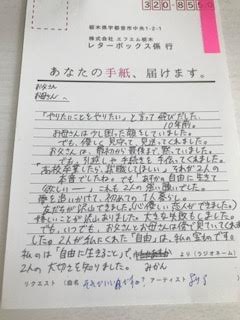 320-850
栃木県宇都宮市中央1-2-1
株式会社 エフエム栃木
レターボックス係 行
あなたの手紙、届けます。
お父さん
お母さんへ
「やりたいことをやりたい」と言って飛びだした
10年前。
お母さんは少し困った顔をしていました。
でも、優しく見守って見送ってくれました。
お父さんは、最初から最後まで黙っていました。
でも、引越しや手続きを手伝ってくれました。
「高校卒業したら、就職してほしい」それが2人の
本音でしたね。でも、「あなたの自由に生きて
欲しい―」これも2人の強い願いでした。
夢を追いかけて、初めての1人暮らし。
友だちが沢山できました。いい優しい恋人ができました。
悔しいことが沢山ありました。大きな失敗もしました。
でも、いつでも、お父さんとお母さんは傍で見ていてくれま
した。2人が私にくれた「自由」は、私の宝ものです。
私のは「自由に生きること」で より(ラジオネーム)
2人の大切さを知りました。 みかん
リクエスト (曲名 それがいい アーティスト